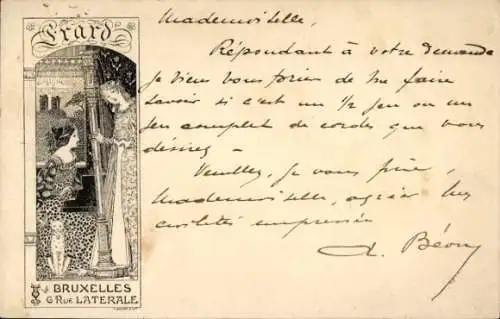 Erard
BRUXELLES
6 RUE LATERALE
Mademoiselle,
Répondant à votre demande
je viens vous prier de me faire
savoir si c'est un ½ jeu ou un
jeu complet de cordes que vous
désirez –
Veuillez, je vous prie,
Mademoiselle, agréer mes
civilités empressées